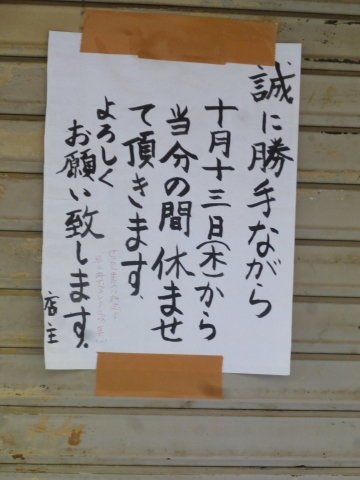 誠に勝手ながら
十月十三日(木)から
当分の間休ませ
て頂きます、
よろしく
お願い致します。
店主